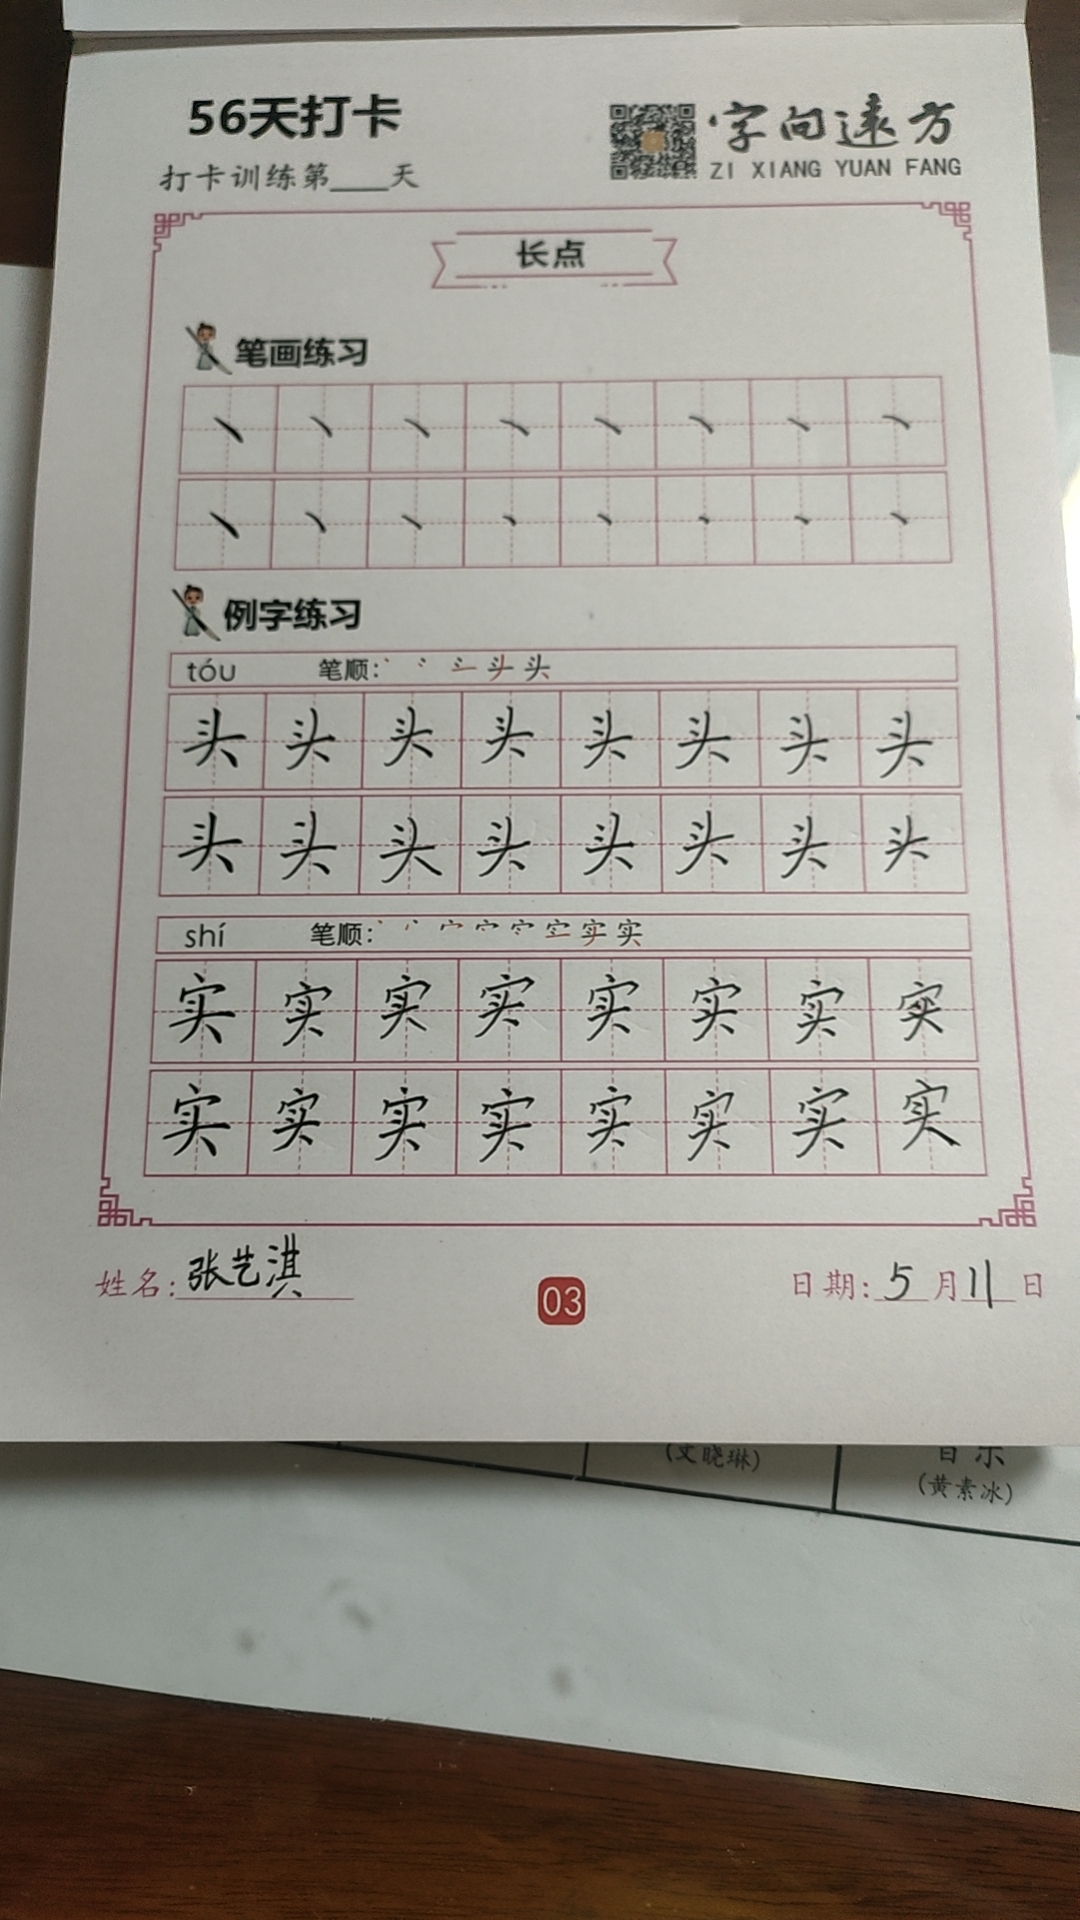 56天打卡
打卡训练第___天
字向远方
ZI XIANG YUAN FANG
长点
笔画练习
丶 丶 丶 丶 丶 丶 丶 丶
丶 丶 丶 丶 丶 丶 丶 丶
例字练习
tóu 笔顺: 头
头 头 头 头 头 头 头 头
头 头 头 头 头 头 头 头
shí 笔顺: 实
实 实 实 实 实 实 实 实
实 实 实 实 实 实 实 实
姓名: 张艺淇
03
日期: 5月11日
(文晓琳)
音乐
(黄素冰)